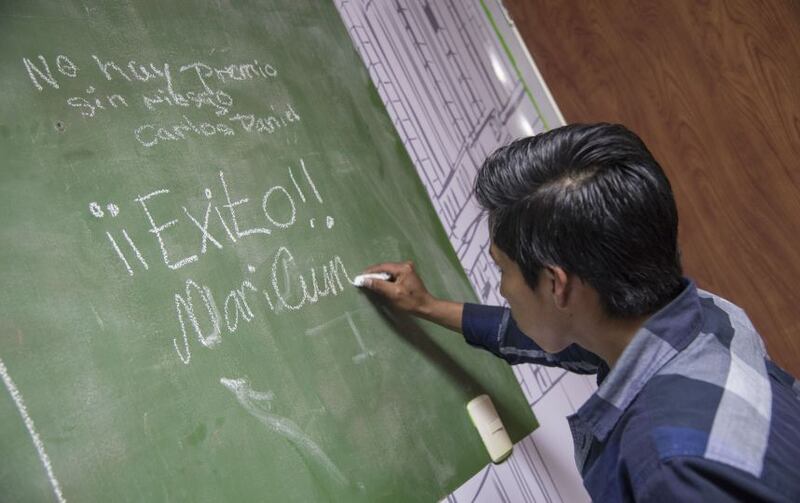 No hay premio
sin riesgo
Carlos Daniel
¡¡Exito!!